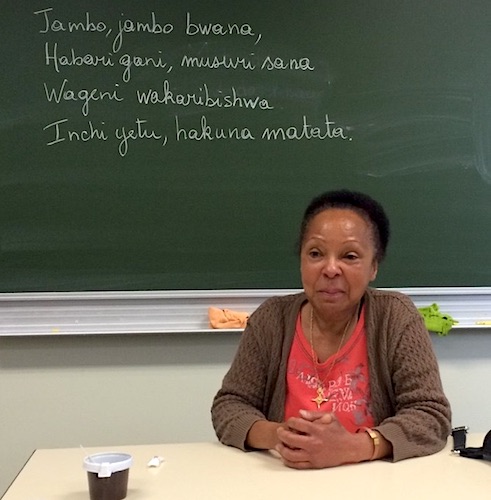 Jambo, jambo bwana,
Habari gani, musuri sana
Wageni wakaribishwa
Inchi yetu, hakuna matata.